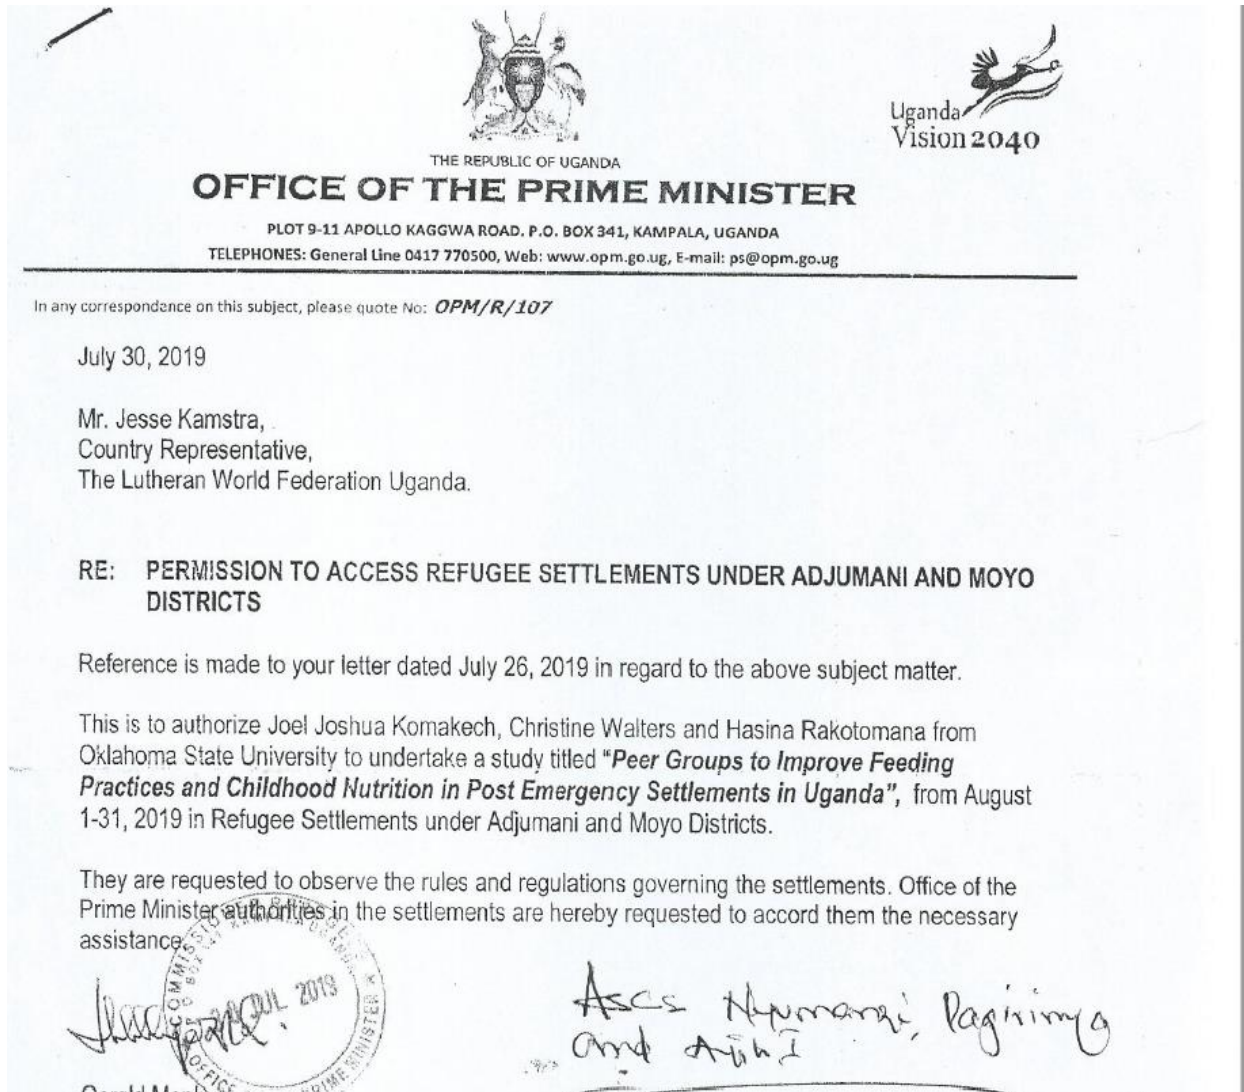 Uganda
Vision 2040
THE REPUBLIC OF UGANDA
OFFICE OF THE PRIME MINISTER
PLOT 9-11 APOLLO KAGGWA ROAD. P.O. BOX 341, KAMPALA, UGANDA
TELEPHONES: General Line 0417 770500, Web: www.opm.go.ug, E-mail: ps@opm.go.ug
In any correspondence on this subject, please quote No: OPM/R/107
July 30, 2019
Mr. Jesse Kamstra,
Country Representative,
The Lutheran World Federation Uganda.
RE: PERMISSION TO ACCESS REFUGEE SETTLEMENTS UNDER ADJUMANI AND MOYO
DISTRICTS
Reference is made to your letter dated July 26, 2019 in regard to the above subject matter.
This is to authorize Joel Joshua Komakech, Christine Walters and Hasina Rakotomana from
Oklahoma State University to undertake a study titled "Peer Groups to Improve Feeding
Practices and Childhood Nutrition in Post Emergency Settlements in Uganda", from August
1-31, 2019 in Refugee Settlements under Adjumani and Moyo Districts.
They are requested to observe the rules and regulations governing the settlements. Office of the
Prime Minister authorities in the settlements are hereby requested to accord them the necessary
assistance.
JUL 2019
OFFICE PRIME MINISTER
Ascs Nyumanzi, Pagirinya
and